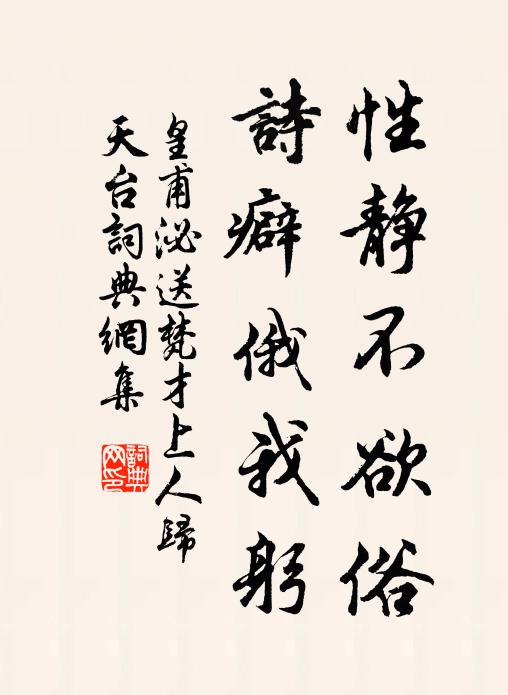 性静不欲俗
詩癖俄我躬
皇甫泌送梵才上人歸
天台詞典網集
詞典
网印